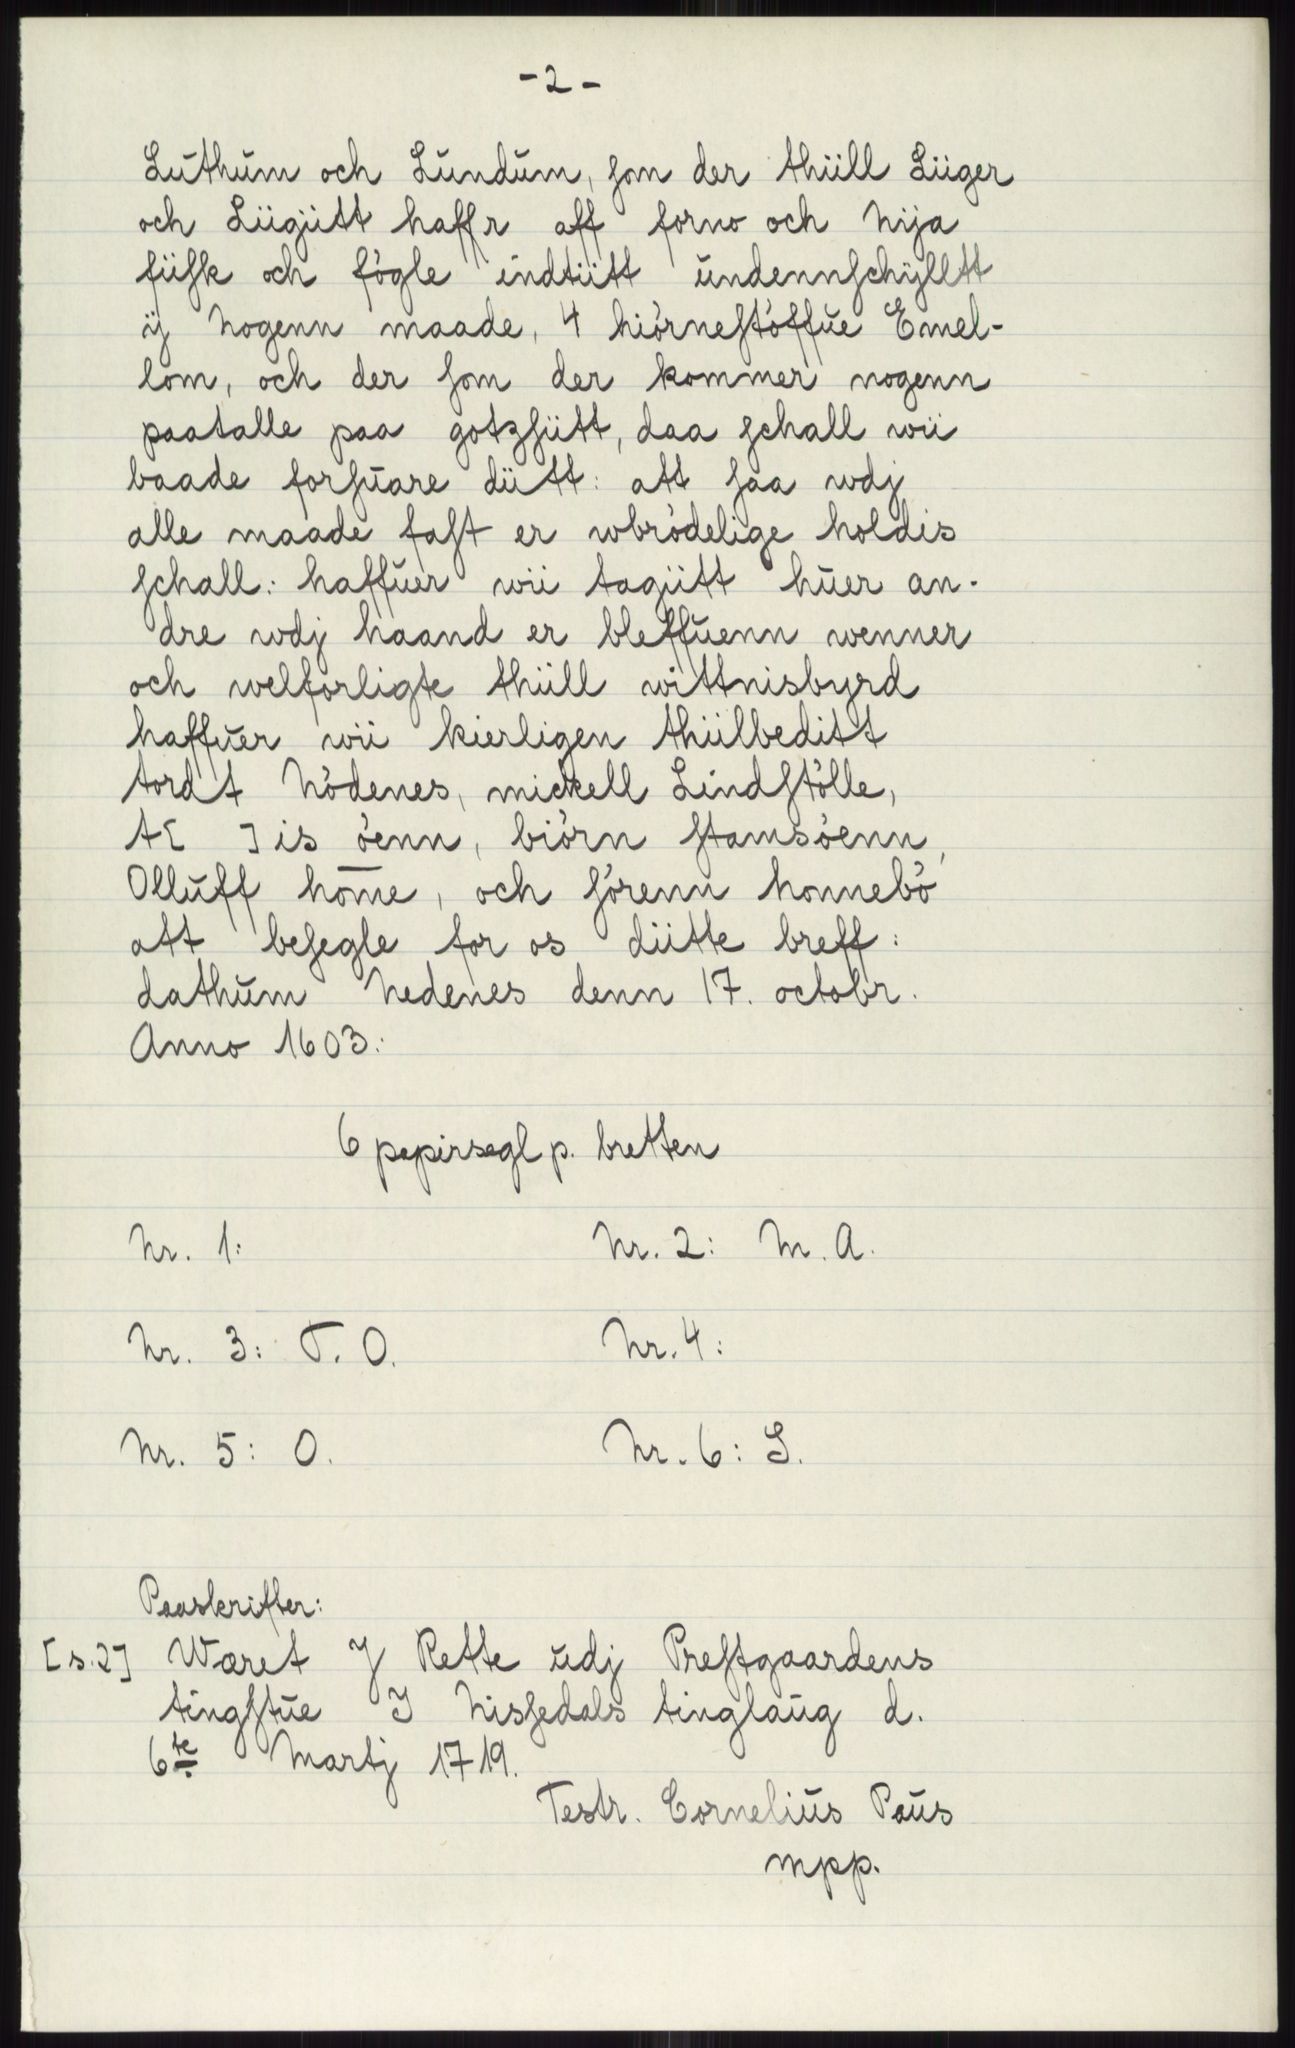 - 2 -
Luthum och Lundum, som der thiill Liiger
och Liigiitt haffr aff forno och Nija
fiisk och fögle indtiitt undennschÿlltt
ij Nogenn maade, 4 hiörnestöffue Emel-
lom, och der som der kommer nogenn
paatalle paa gotzsiitt, daa schall wii
baade forsuare diitt: att saa wdj
alle maade fast er wbrödelige holdis
schall: haffuer wii tagiitt huer an-
dre wdj haand er bleffuenn wenner
och welforligte thiill wittnisbyrd
haffuer wii kierligen thiilbeditt
tordt Nödenes, mickell Lindstölle,
t[ ]is öenn, biörn stamsöenn,
Olluff hom̅e, och sörenn honnebö
att besegle for os diitte breff:
dathum Nedenes denn 17. octobr.
Anno 1603:
6 papirsegl p. bretten
Nr. 1: Nr. 2: M. A.
Nr. 3: T. O. Nr. 4:
Nr. 5: O. Nr. 6: S.
Paaskrifter:
[s.2] Wæret J Rette udj Prestgaardens
tingstue I Nissedals tinglaug d.
6te Martj 1719.
Testr. Cornelius Paus
mpp.